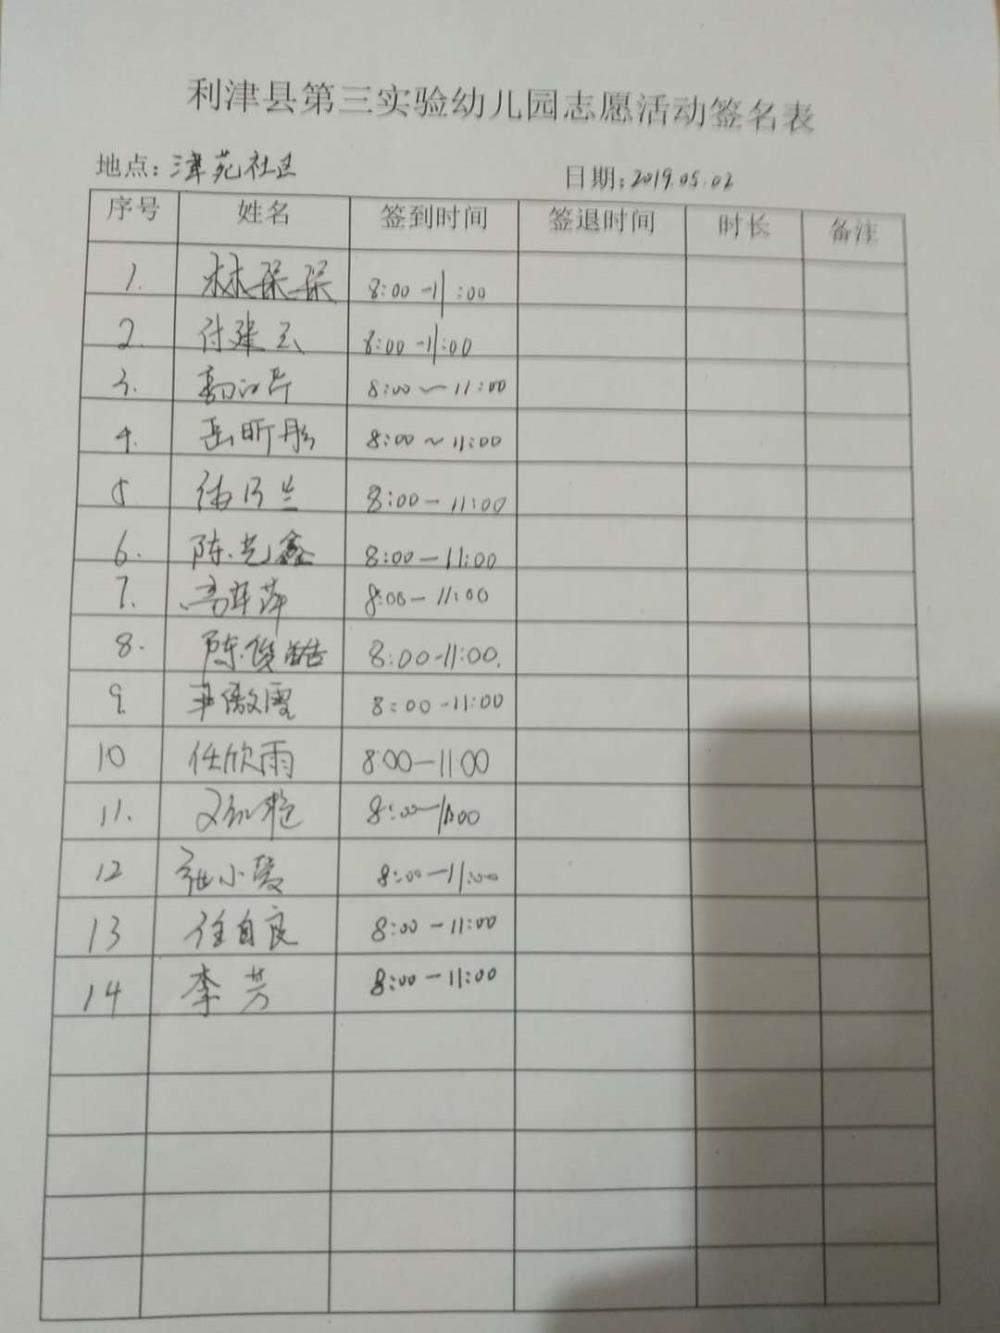 利津县第三实验幼儿园志愿活动签名表
地点：津苑社区 日期：2019.05.02
序号 姓名 签到时间 签退时间 时长 备注
1. 8:00-11:00
2. 付建云 8:00-11:00
3. 8:00～11:00
4. 岳昕彤 8:00～11:00
5 8:00-11:00
6. 陈光鑫 8:00-11:00
7. 8:00-11:00
8. 陈俊皓 8:00-11:00.
9. 8:00-11:00
10 任欣雨 8:00-11:00
11. 8:00-11:00
12 张小爱 8:00-11:00
13 任自良 8:00-11:00
14 李芳 8:00-11:00